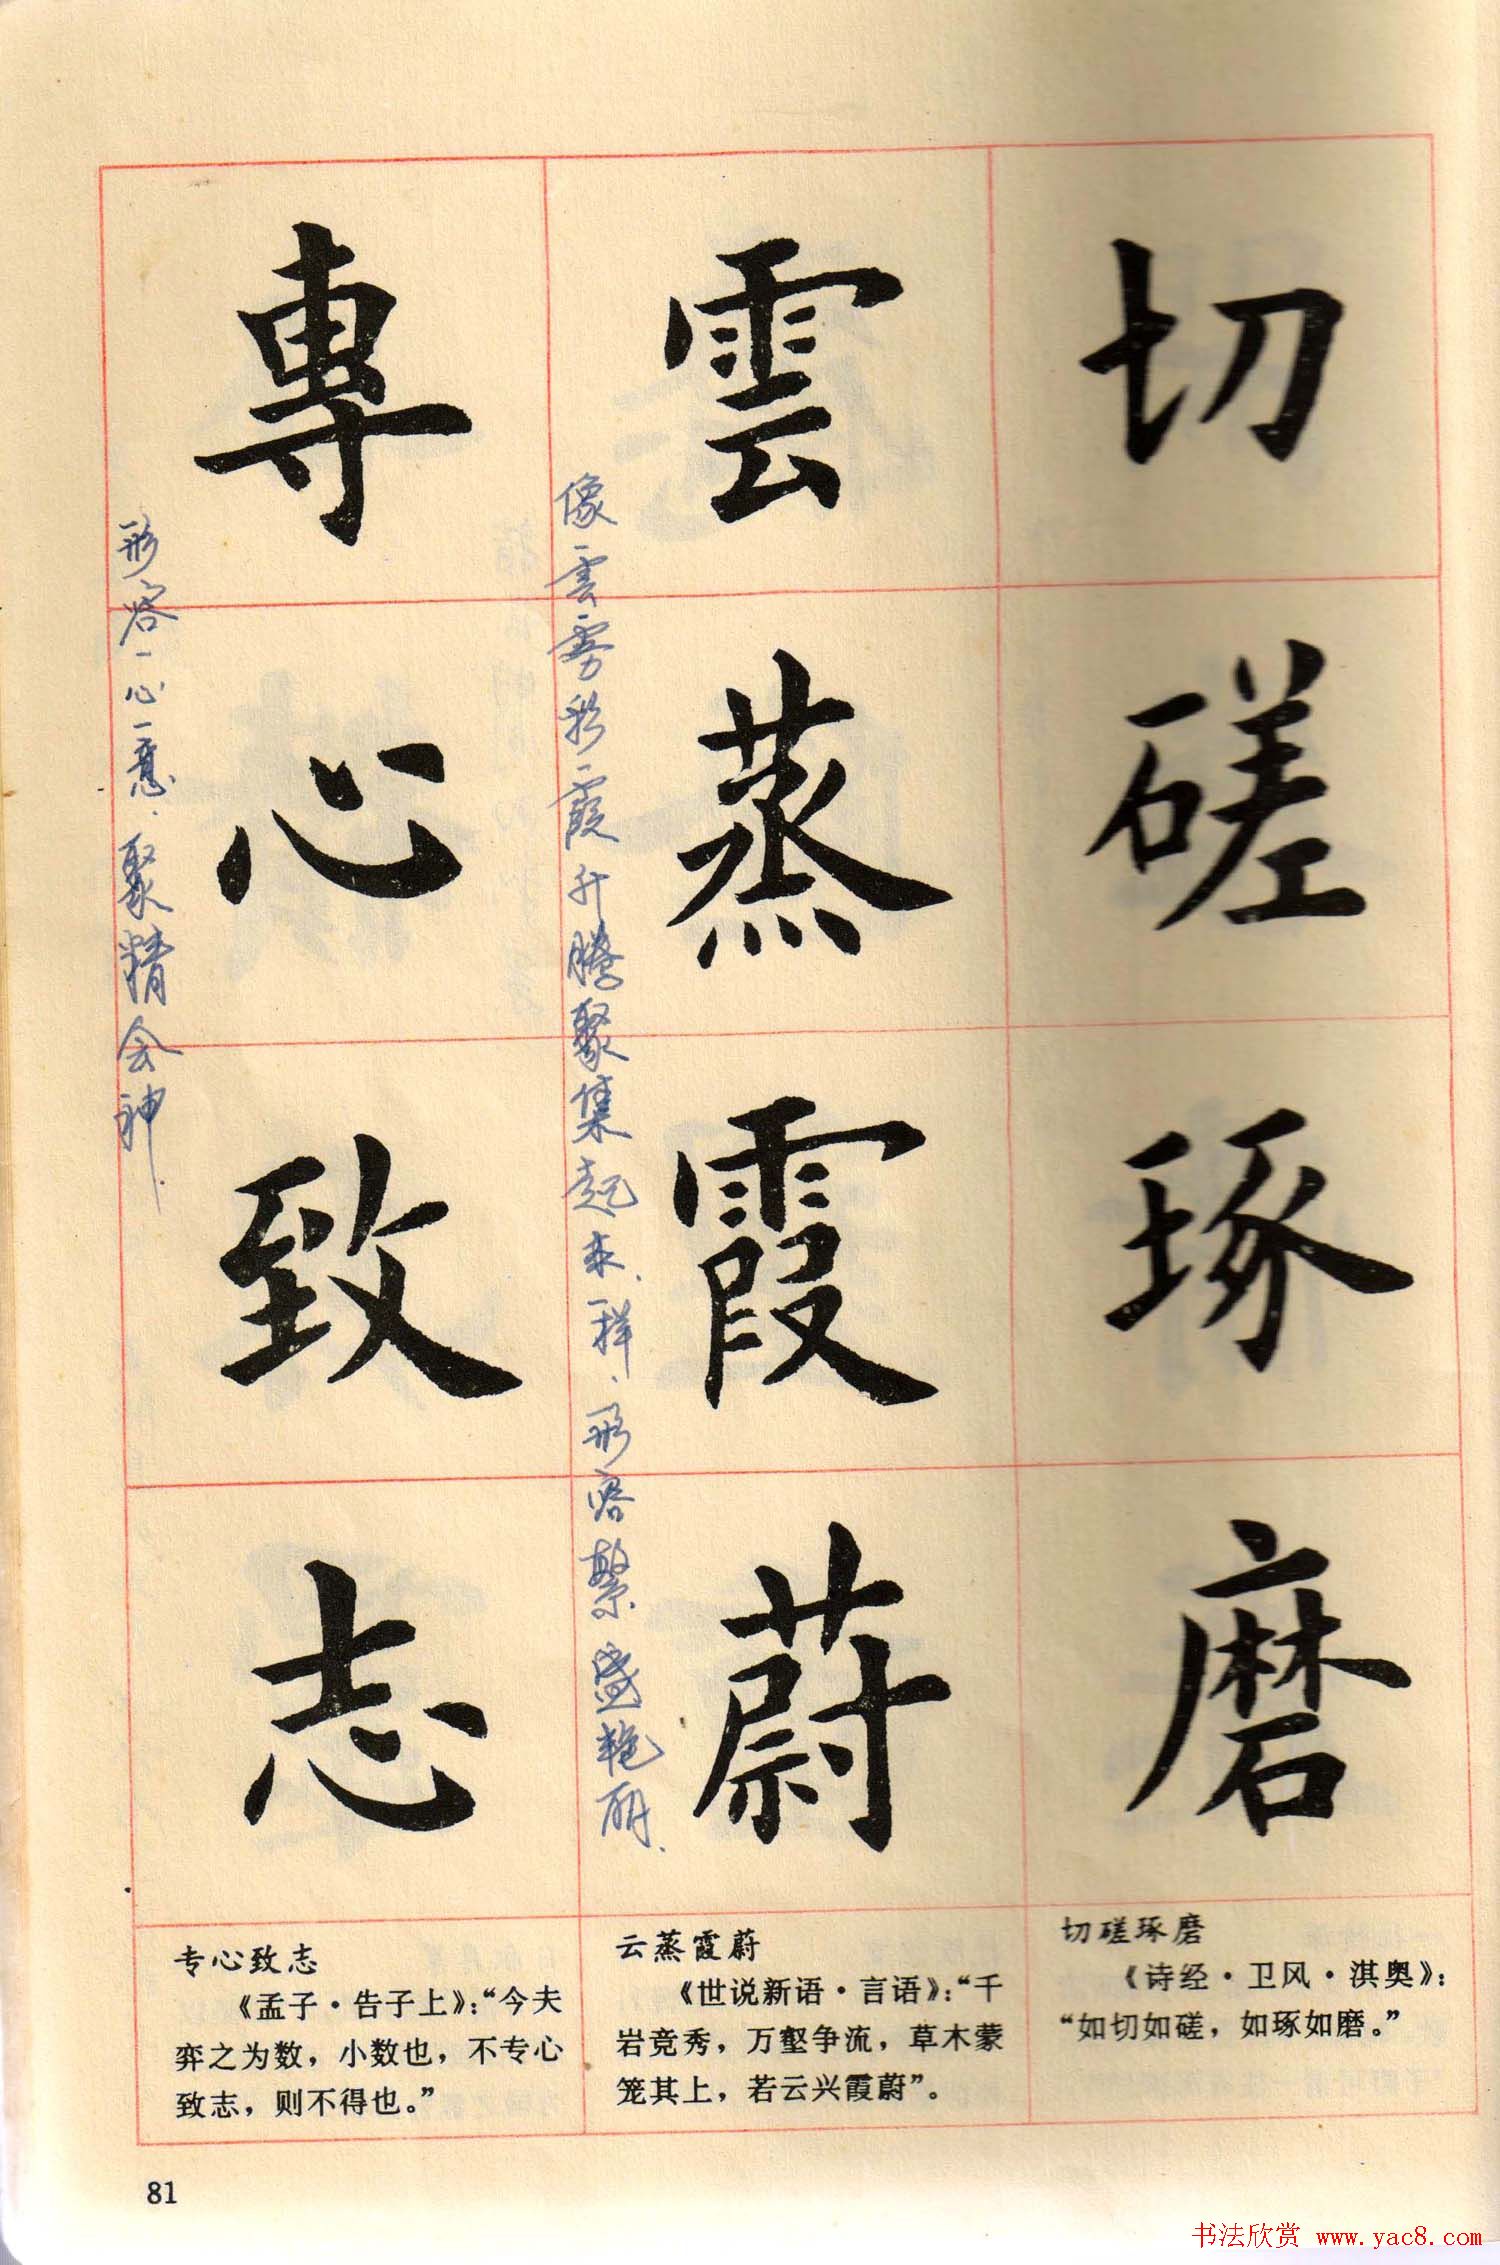 切磋琢磨
雲蒸霞蔚
像雲雾彩霞升腾聚集起来一样，形容繁盛艳丽．
專心致志
形容一心一意，聚精会神．
切磋琢磨
《诗经·卫风·淇奥》：
“如切如磋，如琢如磨。”
云蒸霞蔚
《世说新语·言语》：“千
岩竞秀，万壑争流，草木蒙
笼其上，若云兴霞蔚”。
专心致志
《孟子·告子上》：“今夫
弈之为数，小数也，不专心
致志，则不得也。”
81
书法欣赏 www.yac8.com